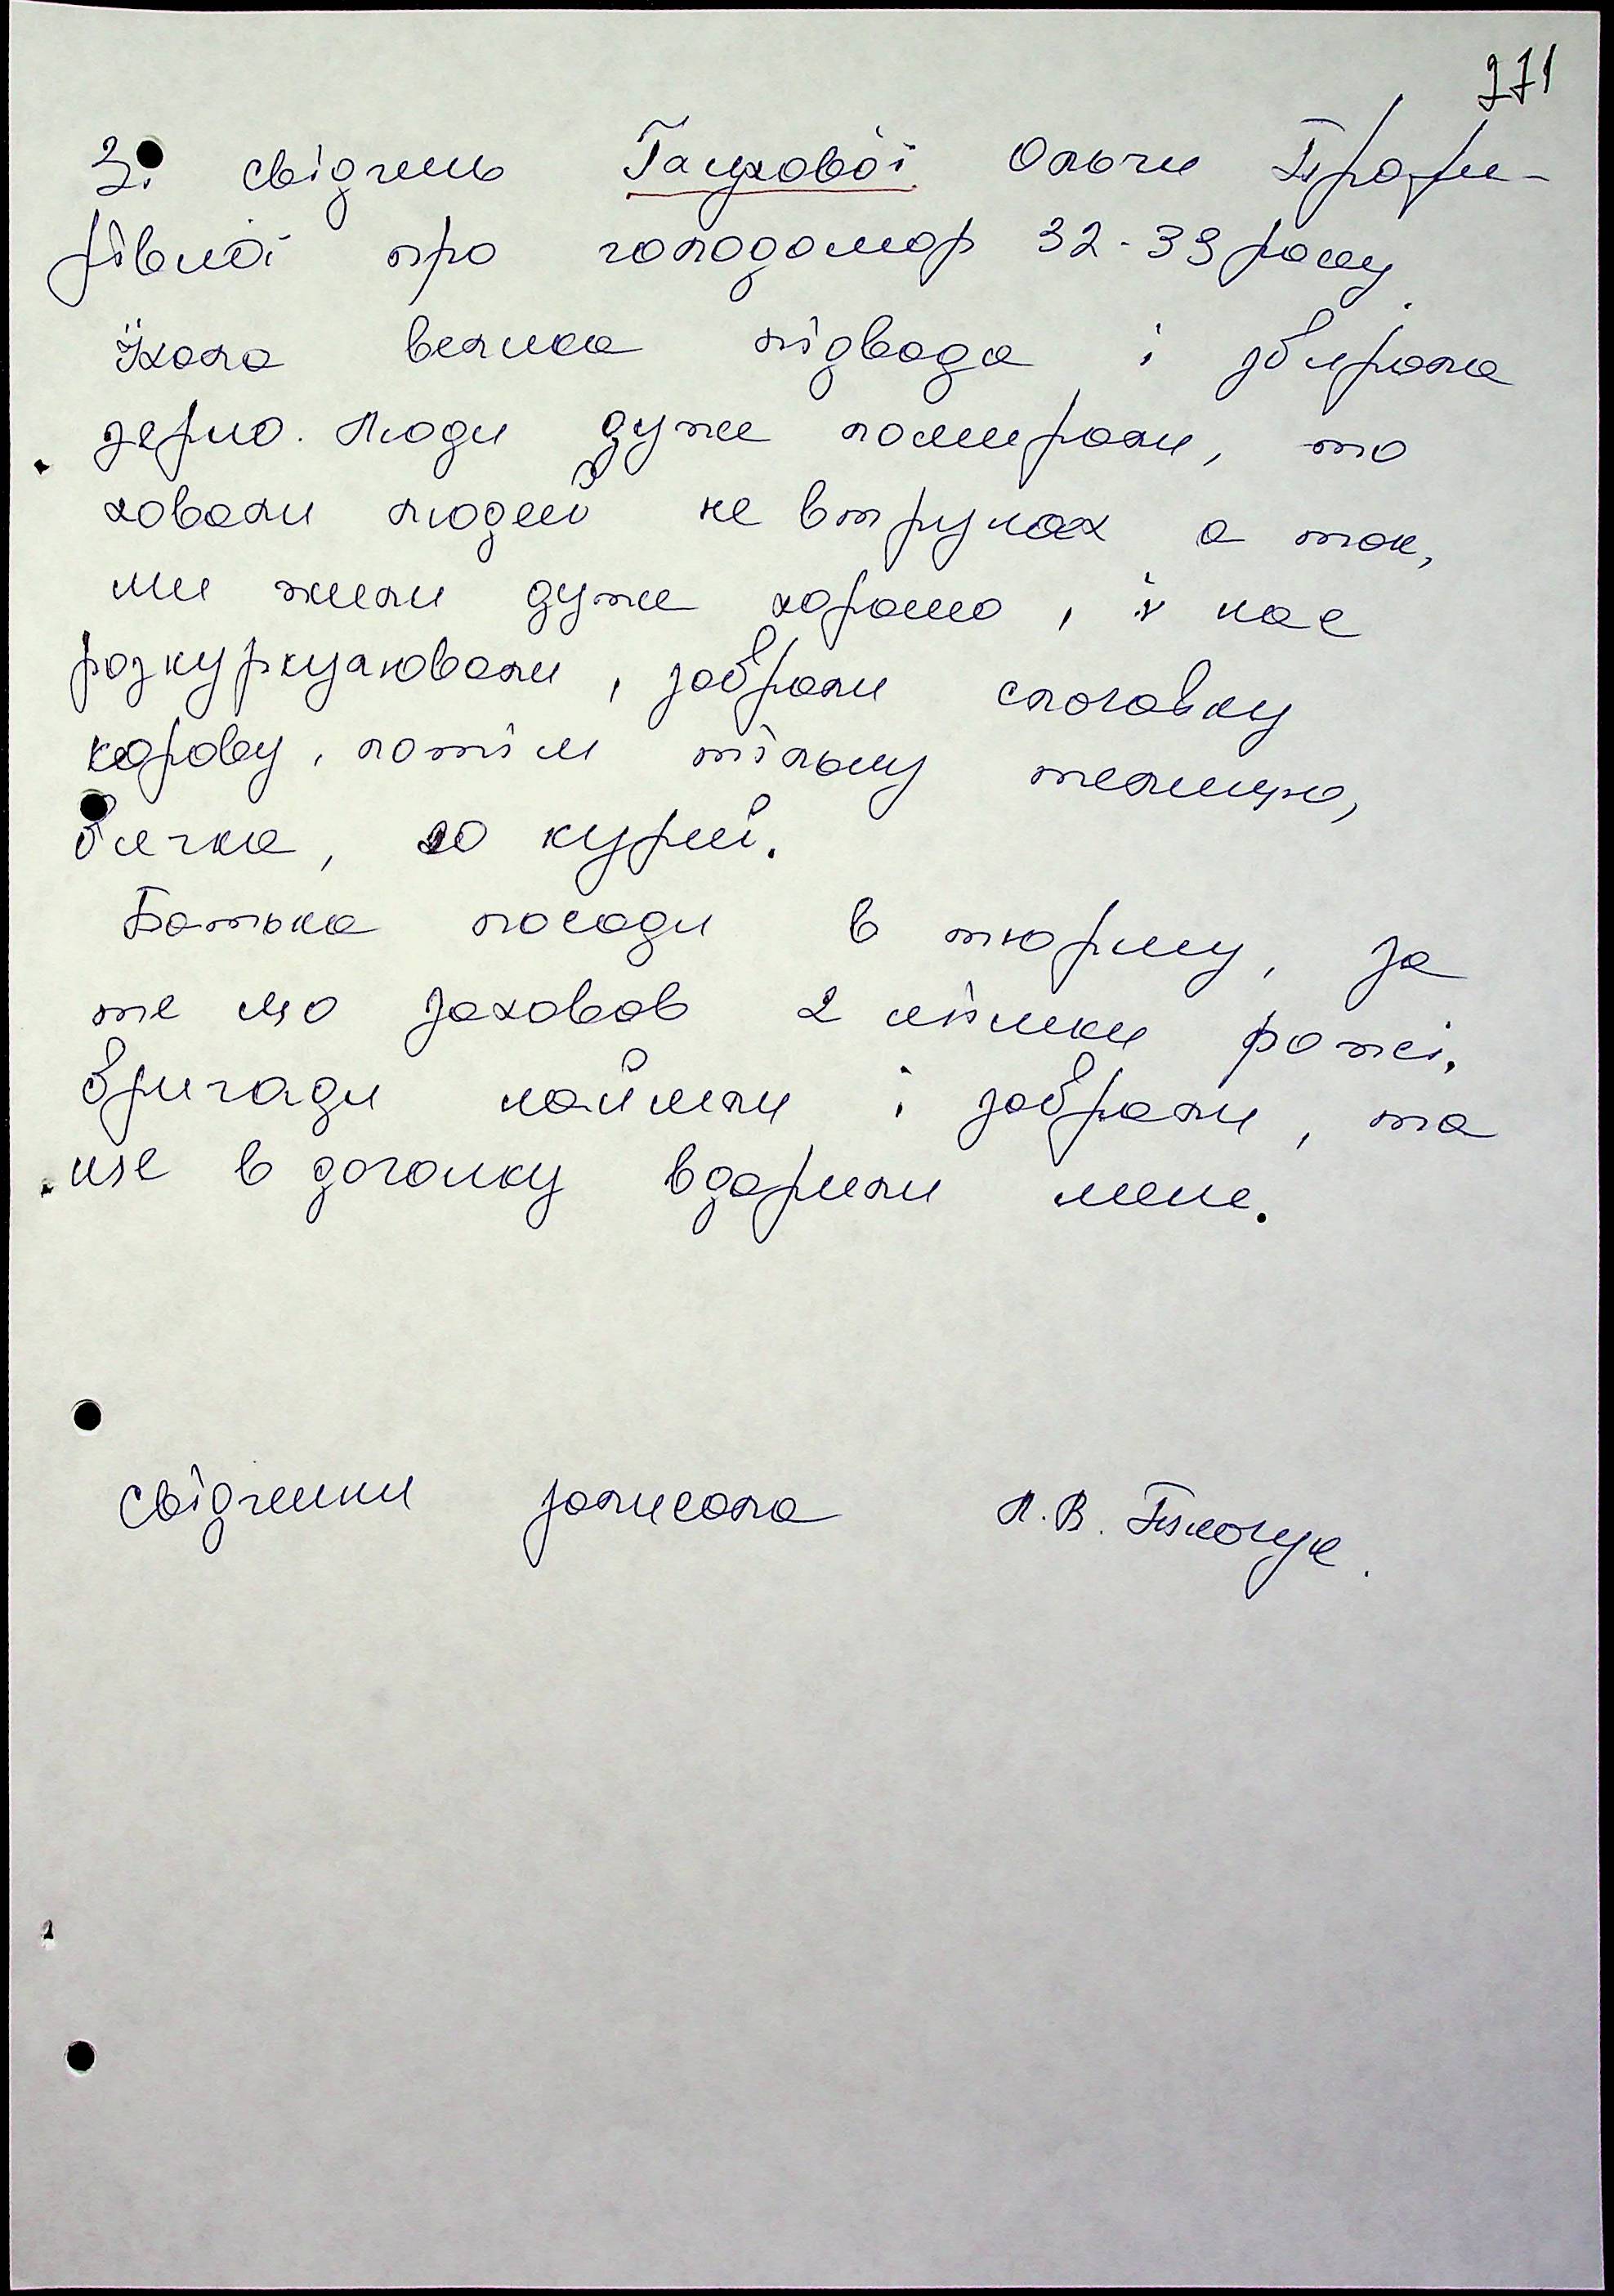 271
Зі свідчень Гаухової Ольги Профи-
рівної про голодомор 32-33 року.
Їхала велика підвода і збирала
зерно. Люди дуже помирали, то
ховали людей не в трунах а так,
ми жили дуже хорошо, і нас
розкуркулювали, забрали спочавку
корову, потім тільну телицю,
бичка, 20 курей.
Батька посади в тюрму, за
те що заховав 2 мішки рожі.
бригади найшли і забрали, та
ще в догонку вдарили мене.
свідчення записала Л.В.